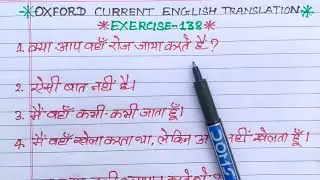 *OXFORD CURRENT ENGLISH TRANSLATION*
*EXERCISE-138*
1. क्या आप वहाँ रोज जाया करते हैं?
2. ऐसी बात नहीं है।
3. मैं वहाँ कभी-कभी जाता हूँ।
4. मैं वहाँ खेला करता था, लेकिन नहीं खेलता हूँ।
DOMS